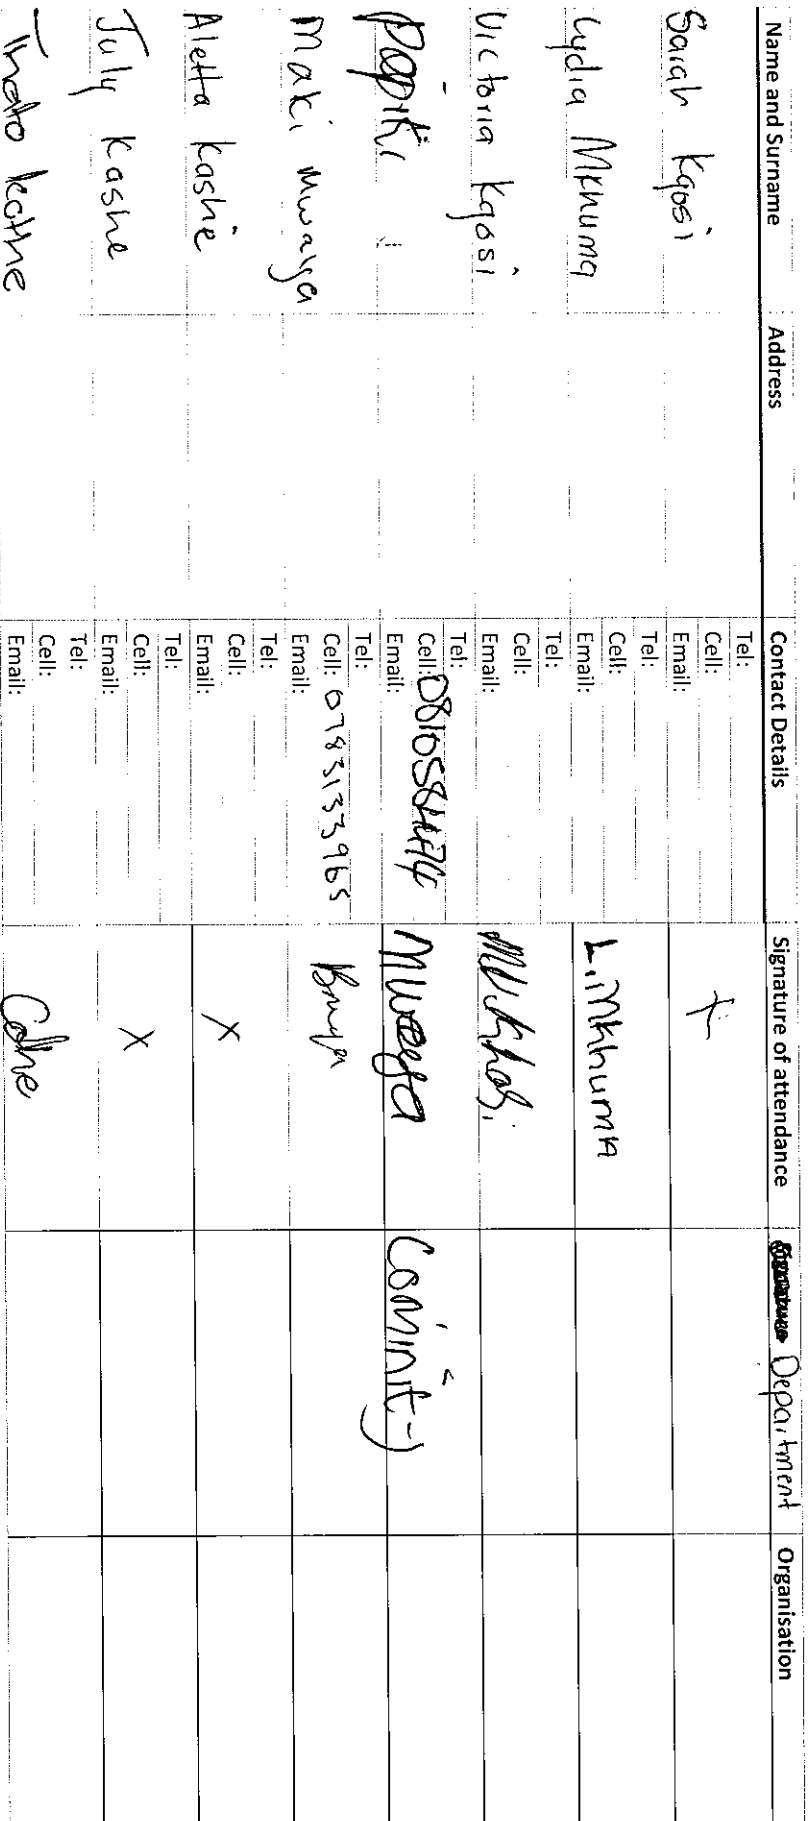 Name and Surname Address Contact Details Signature of attendance Department Organisation
Sarah Kgosi Tel:
Cell: X
Email:
Lydia Mkhuma Tel:
Cell: L.Mkhuma
Email:
Victoria Kgosi Tel:
Cell:
Email:
Popiki Tel:
Cell: 0810584474 Mweya Cominity
Email:
Maki Mwaya Tel:
Cell: 0783133965
Email:
Aletta Kashe Tel:
Cell: X
Email:
July Kashe Tel:
Cell: X
Email:
Thato kothe Tel:
Cell: Cothe
Email: